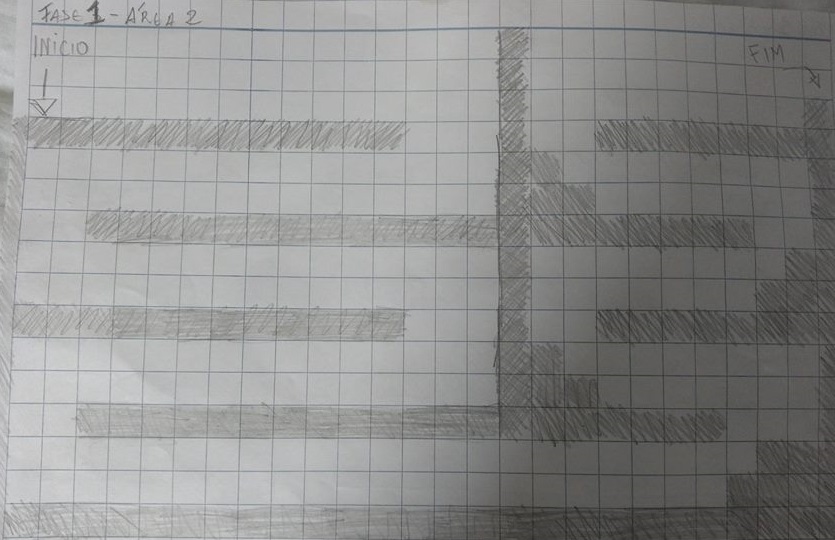 FASE 1 - ÁREA 2
INICIO
FIM